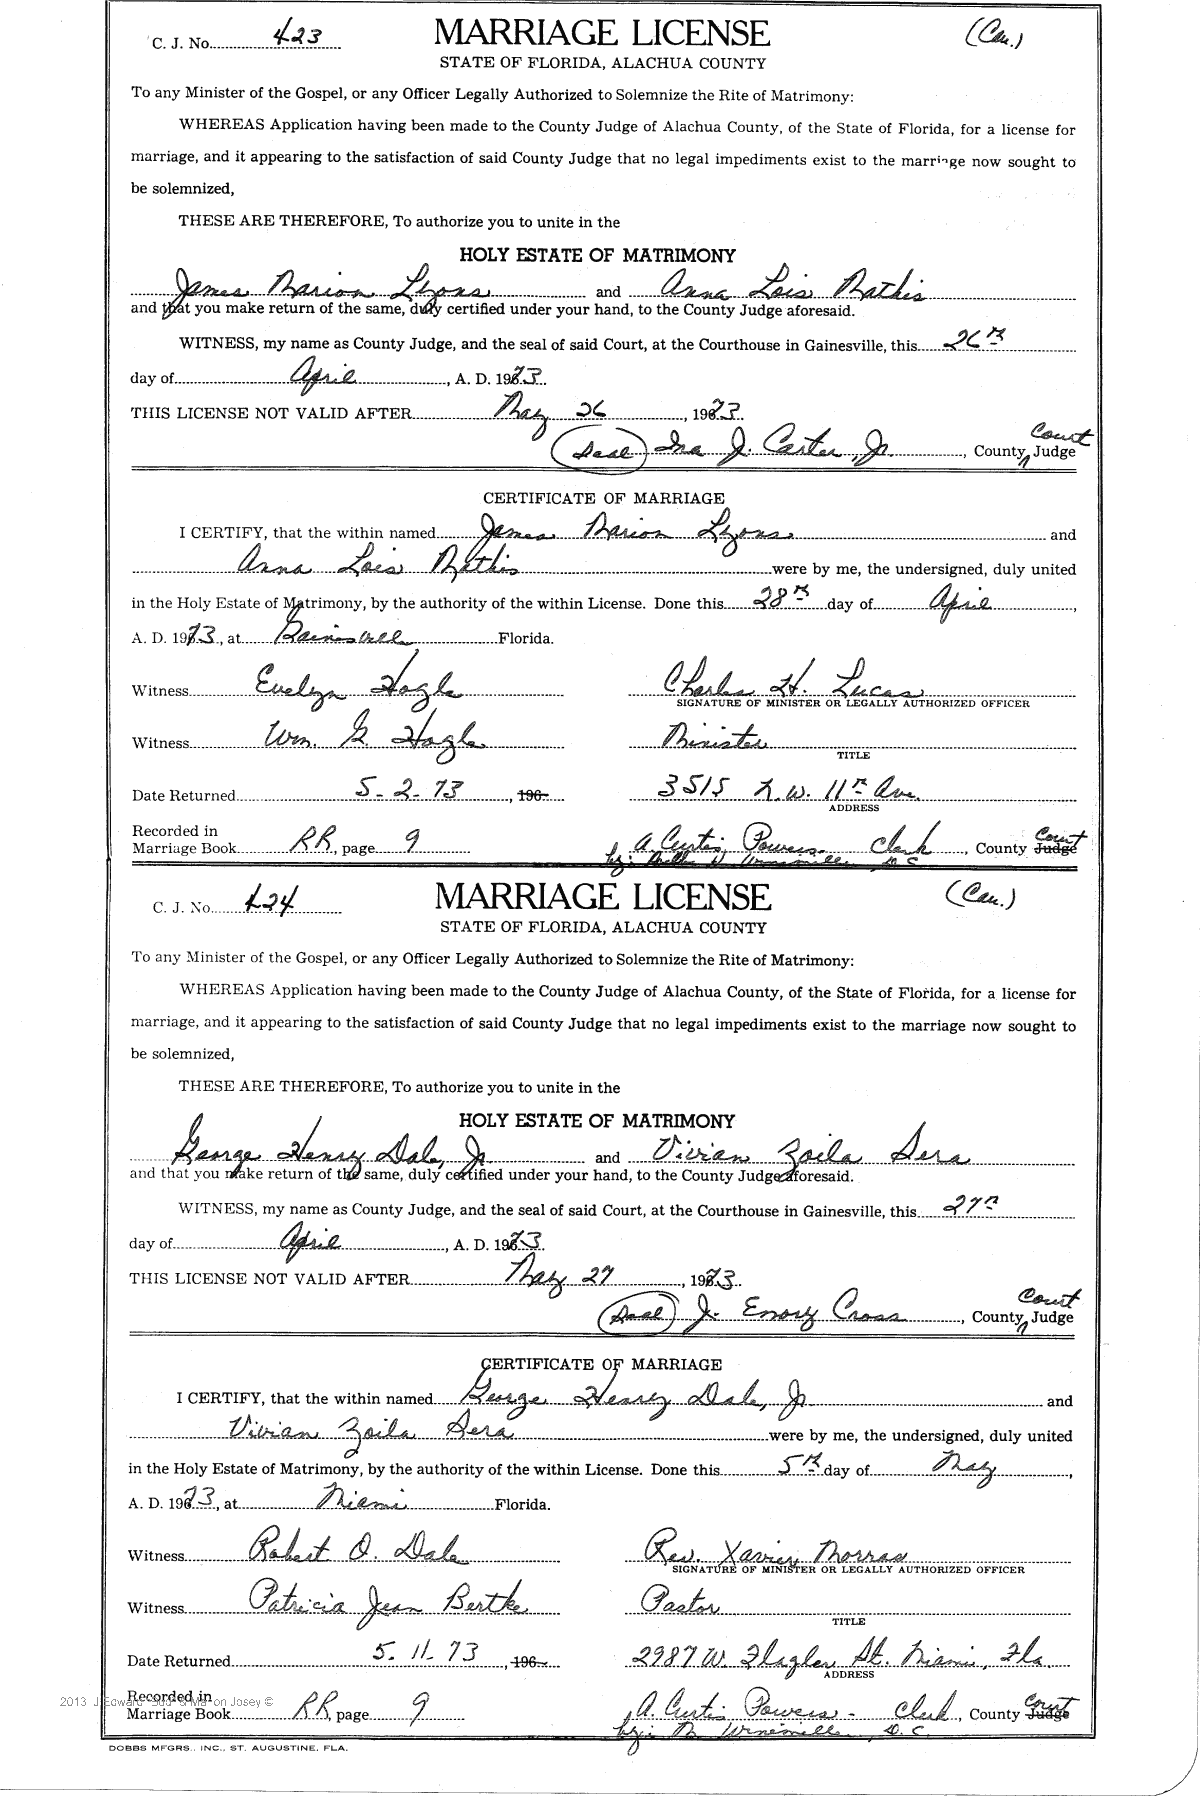 C. J. No. 423 MARRIAGE LICENSE (Cau.)
STATE OF FLORIDA, ALACHUA COUNTY
To any Minister of the Gospel, or any Officer Legally Authorized to Solemnize the Rite of Matrimony:
WHEREAS Application having been made to the County Judge of Alachua County, of the State of Florida, for a license for
marriage, and it appearing to the satisfaction of said County Judge that no legal impediments exist to the marriage now sought to
be solemnized,
THESE ARE THEREFORE, To authorize you to unite in the
HOLY ESTATE OF MATRIMONY
James Marion Lyons and Anna Lois Mathis
and that you make return of the same, duly certified under your hand, to the County Judge aforesaid.
WITNESS, my name as County Judge, and the seal of said Court, at the Courthouse in Gainesville, this 26th
day of April, A. D. 1973.
THIS LICENSE NOT VALID AFTER May 26, 1973.
(Seal) Ira J. Carter, Jr., County Court Judge
CERTIFICATE OF MARRIAGE
I CERTIFY, that the within named James Marion Lyons and
Anna Lois Mathis were by me, the undersigned, duly united
in the Holy Estate of Matrimony, by the authority of the within License. Done this 28th day of April,
A. D. 1973, at Gainesville Florida.
Witness Evelyn Hogle Charles H. Lucas
SIGNATURE OF MINISTER OR LEGALLY AUTHORIZED OFFICER
Witness Wm. G. Hogle Minister
TITLE
Date Returned 5-2-73, 196- 3515 N.W. 11th Ave.
ADDRESS
Recorded in
Marriage Book RR, page 9 A. Curtis Powers- Clerk, County Court Judge
by: D.C.
C. J. No. 424 MARRIAGE LICENSE (Cau.)
STATE OF FLORIDA, ALACHUA COUNTY
To any Minister of the Gospel, or any Officer Legally Authorized to Solemnize the Rite of Matrimony:
WHEREAS Application having been made to the County Judge of Alachua County, of the State of Florida, for a license for
marriage, and it appearing to the satisfaction of said County Judge that no legal impediments exist to the marriage now sought to
be solemnized,
THESE ARE THEREFORE, To authorize you to unite in the
HOLY ESTATE OF MATRIMONY
George Henry Dale, Jr and Vivian Zoila Sera
and that you make return of the same, duly certified under your hand, to the County Judge aforesaid.
WITNESS, my name as County Judge, and the seal of said Court, at the Courthouse in Gainesville, this 27th
day of April, A. D. 1973.
THIS LICENSE NOT VALID AFTER May 27, 1973.
(Seal) J. Emory Cross, County Court Judge
CERTIFICATE OF MARRIAGE
I CERTIFY, that the within named George Henry Dale, Jr and
Vivian Zoila Sera were by me, the undersigned, duly united
in the Holy Estate of Matrimony, by the authority of the within License. Done this 5th day of May,
A. D. 1973, at Miami Florida.
Witness Robert O. Dale Rev. Xavier Morras
SIGNATURE OF MINISTER OR LEGALLY AUTHORIZED OFFICER
Witness Patricia Jean Bertke Pastor
TITLE
Date Returned 5-11-73, 196- 2987 W. Flagler St. Miami, Fla.
ADDRESS
Recorded in
Marriage Book RR, page 9 A. Curtis Powers- Clerk, County Court Judge
by: D.C.
DOBBS MFGRS., INC., ST. AUGUSTINE, FLA.